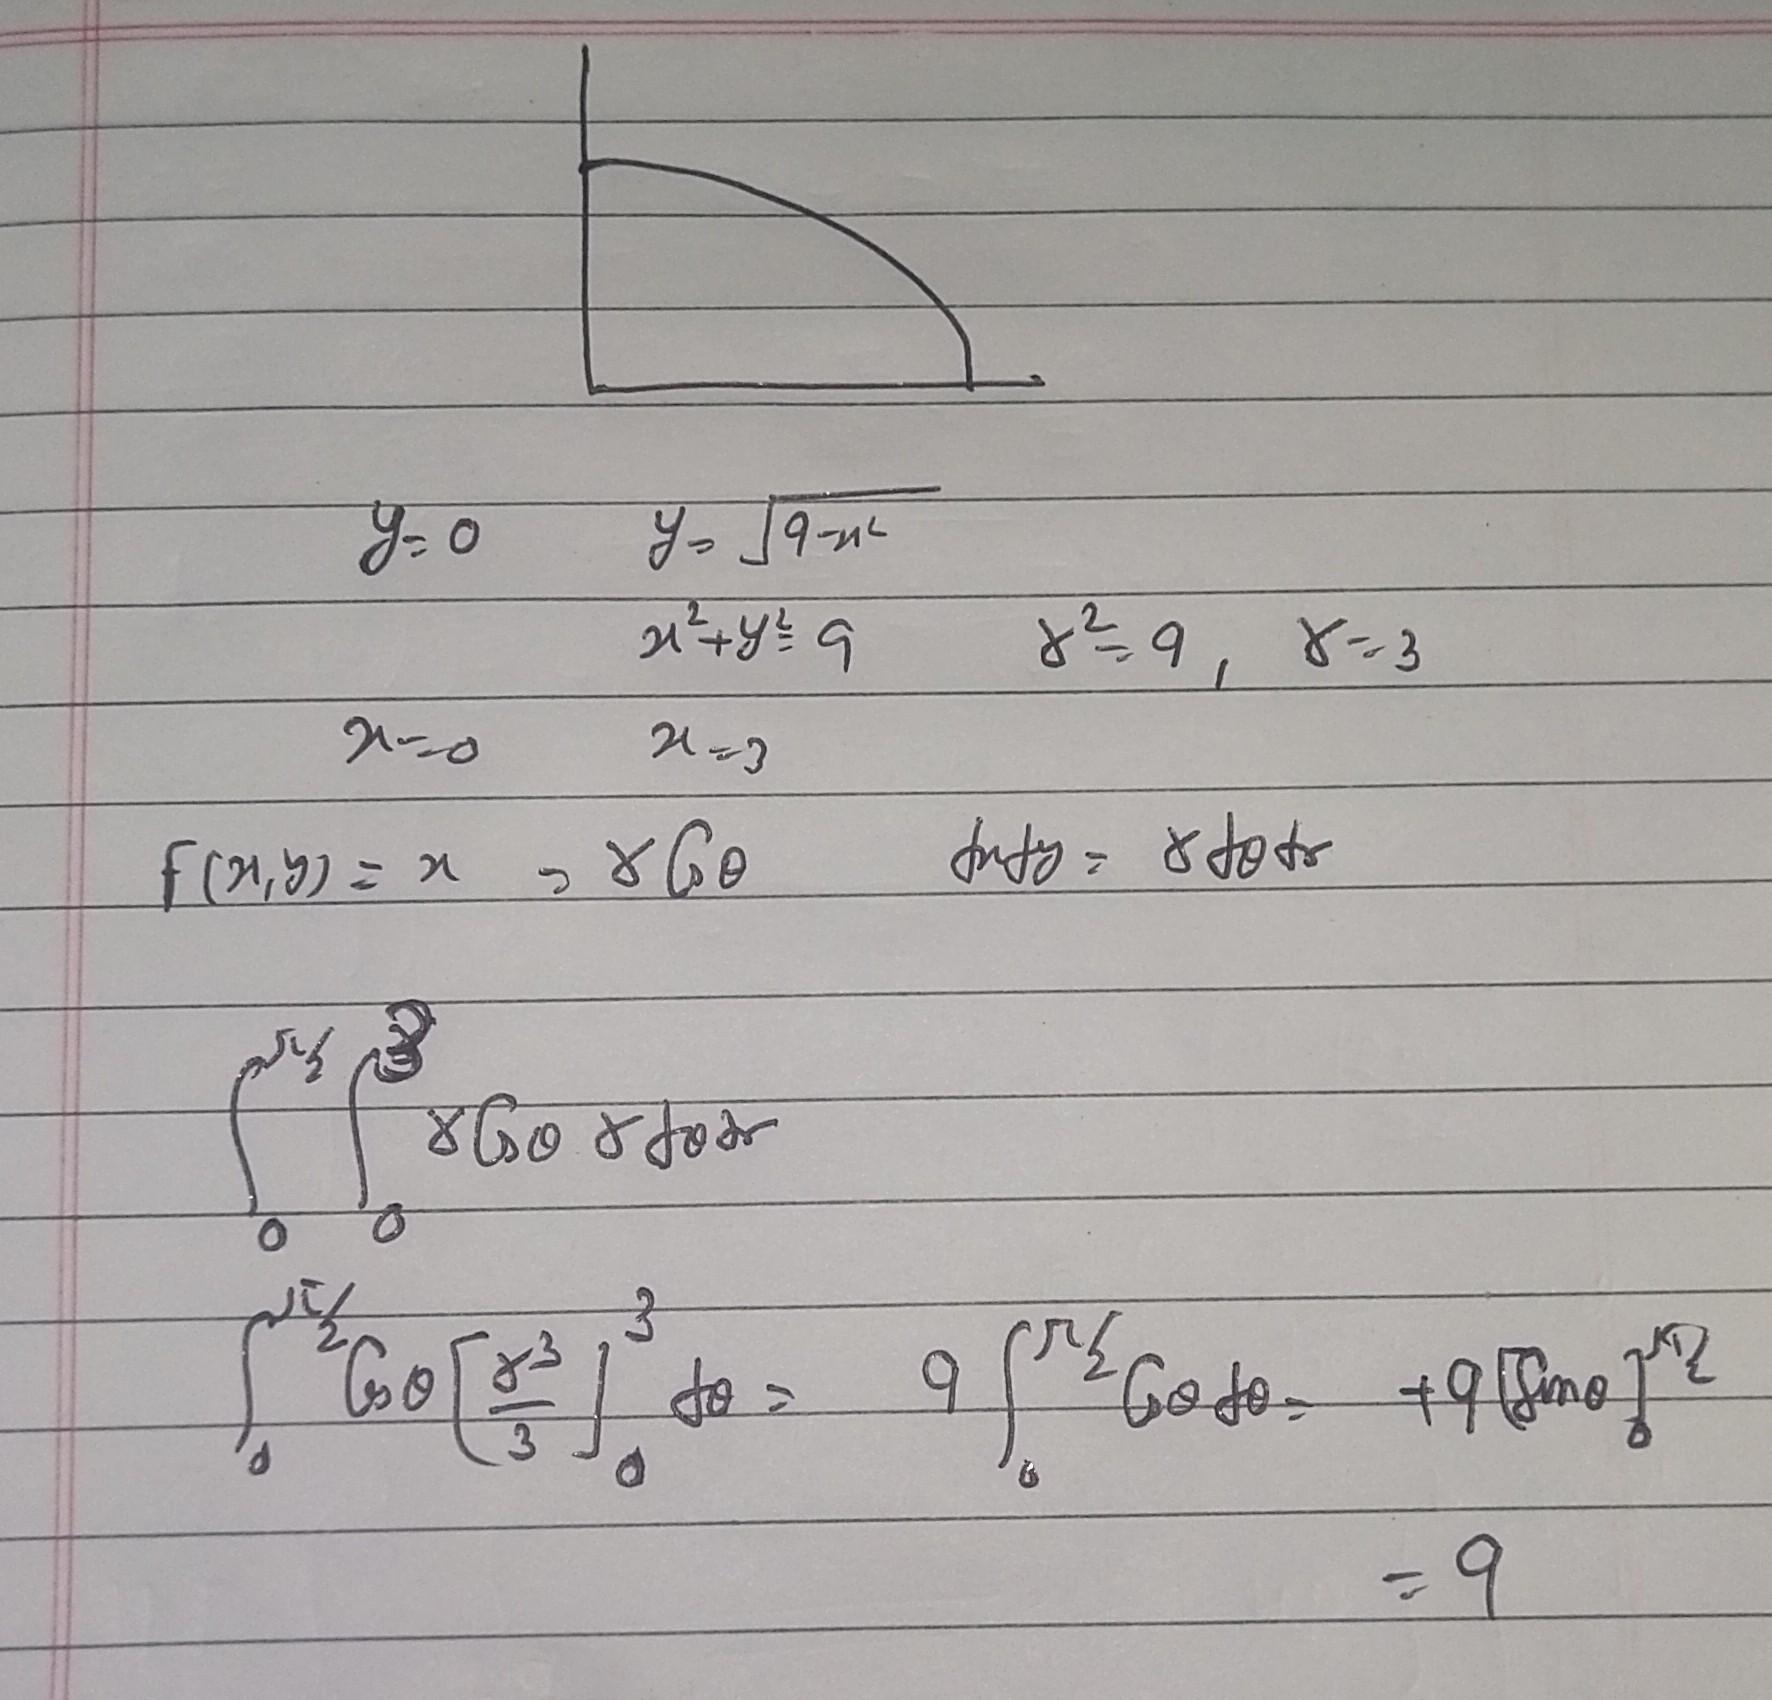 y=0 y=√9-x²
x²+y²=9 r²=9, r=3
x=0 x=3
f(x,y) = x = r Cosθ dxdy = r dθ dr
∫₀^π/2 ∫₀^3 r Cosθ r dθ dr
∫₀^π/2 Cosθ [r³/3]₀^3 dθ = 9 ∫₀^π/2 Cosθ dθ = +9 [Sinθ]₀^π/2
= 9